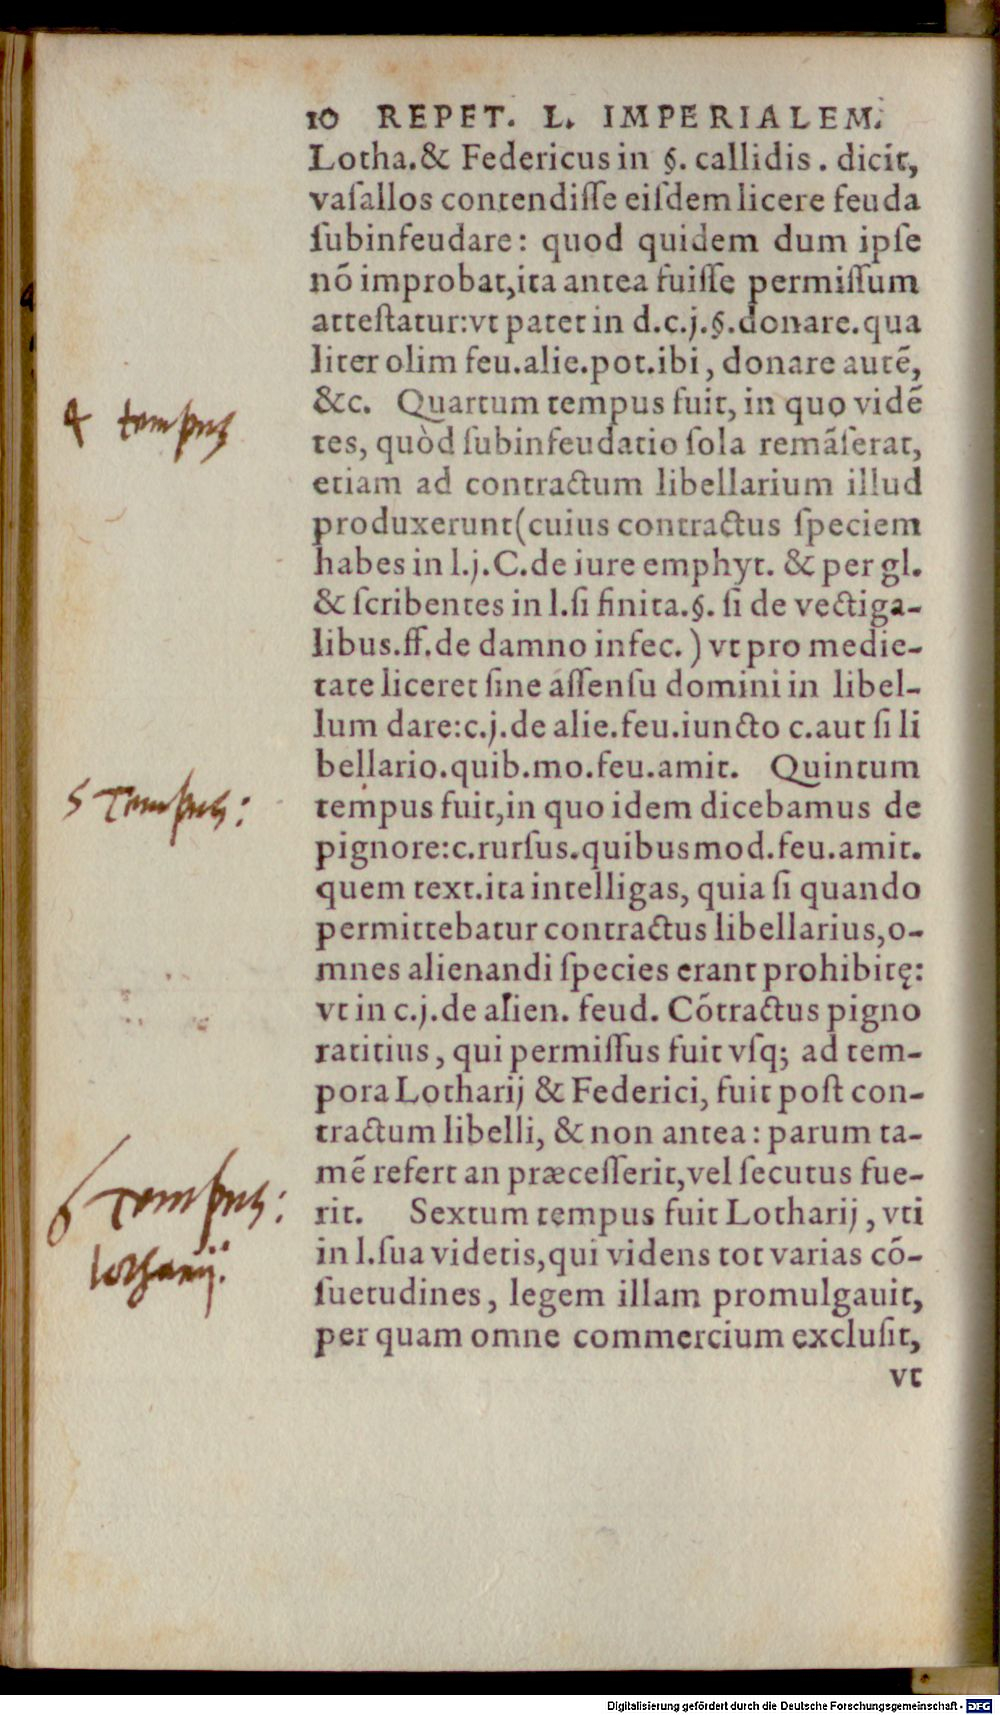 10 REPET. L. IMPERIALEM.
Lotha.& Federicus in §. callidis . dicit,
vaſallos contendiſſe eiſdem licere feuda
ſubinfeudare: quod quidem dum ipſe
nõ improbat,ita antea fuiſſe permiſſum
atteſtatur:vt patet in d.c.j.§.donare.qua
liter olim feu.alie.pot.ibi, donare autẽ,
&c. Quartum tempus fuit, in quo vidẽ
4 tempus
tes, quòd ſubinfeudatio ſola remãſerat,
etiam ad contractum libellarium illud
produxerunt(cuius contractus ſpeciem
habes in l.j.C.de iure emphyt. & per gl.
& ſcribentes in l.ſi finita.§. ſi de vectiga-
libus.ff.de damno infec. ) vt pro medie-
tate liceret ſine aſſenſu domini in libel-
lum dare:c.j.de alie.feu.iuncto c.aut ſi li
bellario.quib.mo.feu.amit. Quintum
5 Tempus:
tempus fuit,in quo idem dicebamus de
pignore:c.rurſus.quibusmod.feu.amit.
quem text.ita intelligas, quia ſi quando
permittebatur contractus libellarius,o-
mnes alienandi ſpecies erant prohibitę:
vt in c.j.de alien. feud. Cõtractus pigno
ratitius, qui permiſſus fuit vſq; ad tem-
pora Lotharij & Federici, fuit poſt con-
tractum libelli, & non antea: parum ta-
mẽ refert an præceſſerit,vel ſecutus fue-
6 Tempus:
rit. Sextum tempus fuit Lotharij, vti
lotharij.
in l.ſua videtis,qui videns tot varias cõ-
ſuetudines, legem illam promulgauit,
per quam omne commercium excluſit,
vt
Digitalisierung gefördert durch die Deutsche Forschungsgemeinschaft - DFG